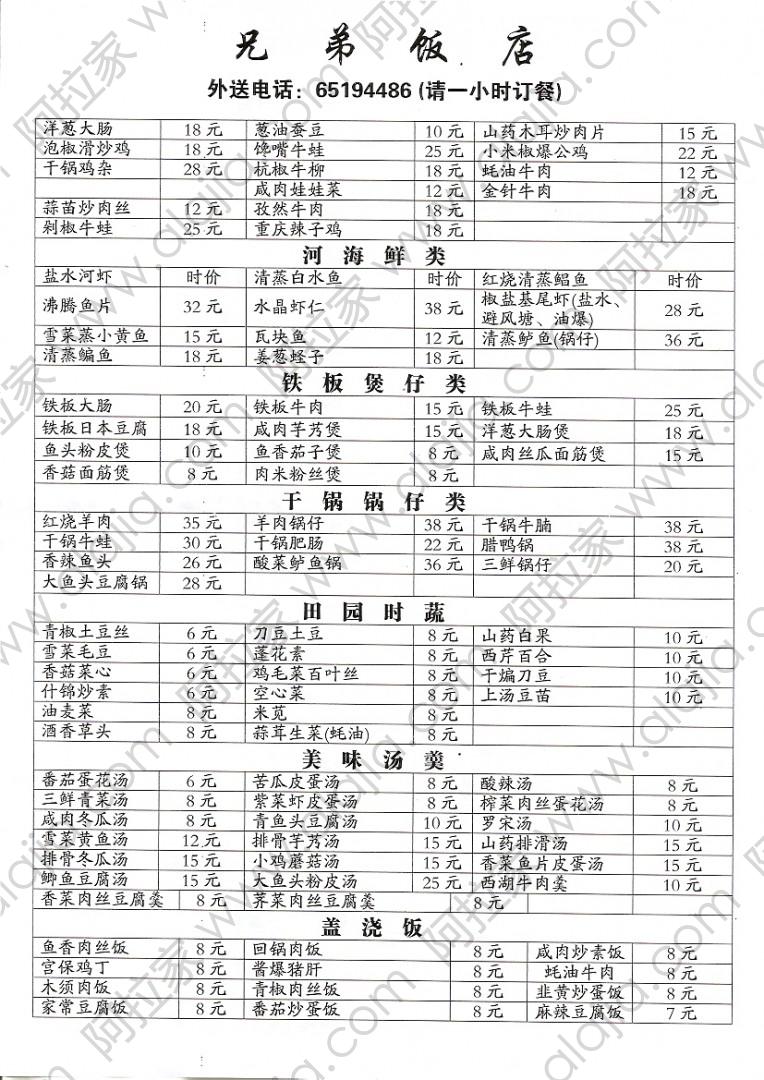 兄弟饭店
外送电话：65194486 (请一小时订餐)
洋葱大肠 18 元 葱油蚕豆 10 元 山药木耳炒肉片 15 元
泡椒滑炒鸡 18 元 馋嘴牛蛙 25 元 小米椒爆公鸡 22 元
干锅鸡杂 28 元 杭椒牛柳 18 元 蚝油牛肉 12 元
咸肉娃娃菜 12 元 金针牛肉 18 元
蒜苗炒肉丝 12 元 孜然牛肉 18 元
剁椒牛蛙 25 元 重庆辣子鸡 18 元
河海鲜类
盐水河虾 时价 清蒸白水鱼 时价 红烧清蒸鲳鱼 时价
沸腾鱼片 32 元 水晶虾仁 38 元 椒盐基尾虾(盐水、避风塘、油爆) 28 元
雪菜蒸小黄鱼 15 元 瓦块鱼 12 元 清蒸鲈鱼(锅仔) 36 元
清蒸鳊鱼 18 元 姜葱蛏子 18 元
铁板煲仔类
铁板大肠 20 元 铁板牛肉 15 元 铁板牛蛙 25 元
铁板日本豆腐 18 元 咸肉芋艿煲 15 元 洋葱大肠煲 18 元
鱼头粉皮煲 10 元 鱼香茄子煲 8 元 咸肉丝瓜面筋煲 15 元
香菇面筋煲 8 元 肉米粉丝煲 8 元
干锅锅仔类
红烧羊肉 35 元 羊肉锅仔 38 元 干锅牛腩 38 元
干锅牛蛙 30 元 干锅肥肠 22 元 腊鸭锅 38 元
香辣鱼头 26 元 酸菜鲈鱼锅 36 元 三鲜锅仔 20 元
大鱼头豆腐锅 28 元
田园时蔬
青椒土豆丝 6 元 刀豆土豆 8 元 山药白果 10 元
雪菜毛豆 6 元 蓬花素 8 元 西芹百合 10 元
香菇菜心 6 元 鸡毛菜百叶丝 8 元 干煸刀豆 10 元
什锦炒素 6 元 空心菜 8 元 上汤豆苗 10 元
油麦菜 8 元 米苋 8 元
酒香草头 8 元 蒜茸生菜(蚝油) 8 元
美味汤羹
番茄蛋花汤 6 元 苦瓜皮蛋汤 8 元 酸辣汤 8 元
三鲜青菜汤 8 元 紫菜虾皮蛋汤 8 元 榨菜肉丝蛋花汤 8 元
咸肉冬瓜汤 8 元 青鱼头豆腐汤 10 元 罗宋汤 10 元
雪菜黄鱼汤 12 元 排骨芋艿汤 15 元 山药排滑汤 15 元
排骨冬瓜汤 15 元 小鸡蘑菇汤 15 元 香菜鱼片皮蛋汤 15 元
鲫鱼豆腐汤 15 元 大鱼头粉皮汤 25 元 西湖牛肉羹 10 元
香菜肉丝豆腐羹 8 元 荠菜肉丝豆腐羹 8 元
盖浇饭
鱼香肉丝饭 8 元 回锅肉饭 8 元 咸肉炒素饭 8 元
宫保鸡丁 8 元 酱爆猪肝 8 元 蚝油牛肉 8 元
木须肉饭 8 元 青椒肉丝饭 8 元 韭黄炒蛋饭 8 元
家常豆腐饭 8 元 番茄炒蛋饭 8 元 麻辣豆腐饭 7 元
阿拉家 www.alajia.com